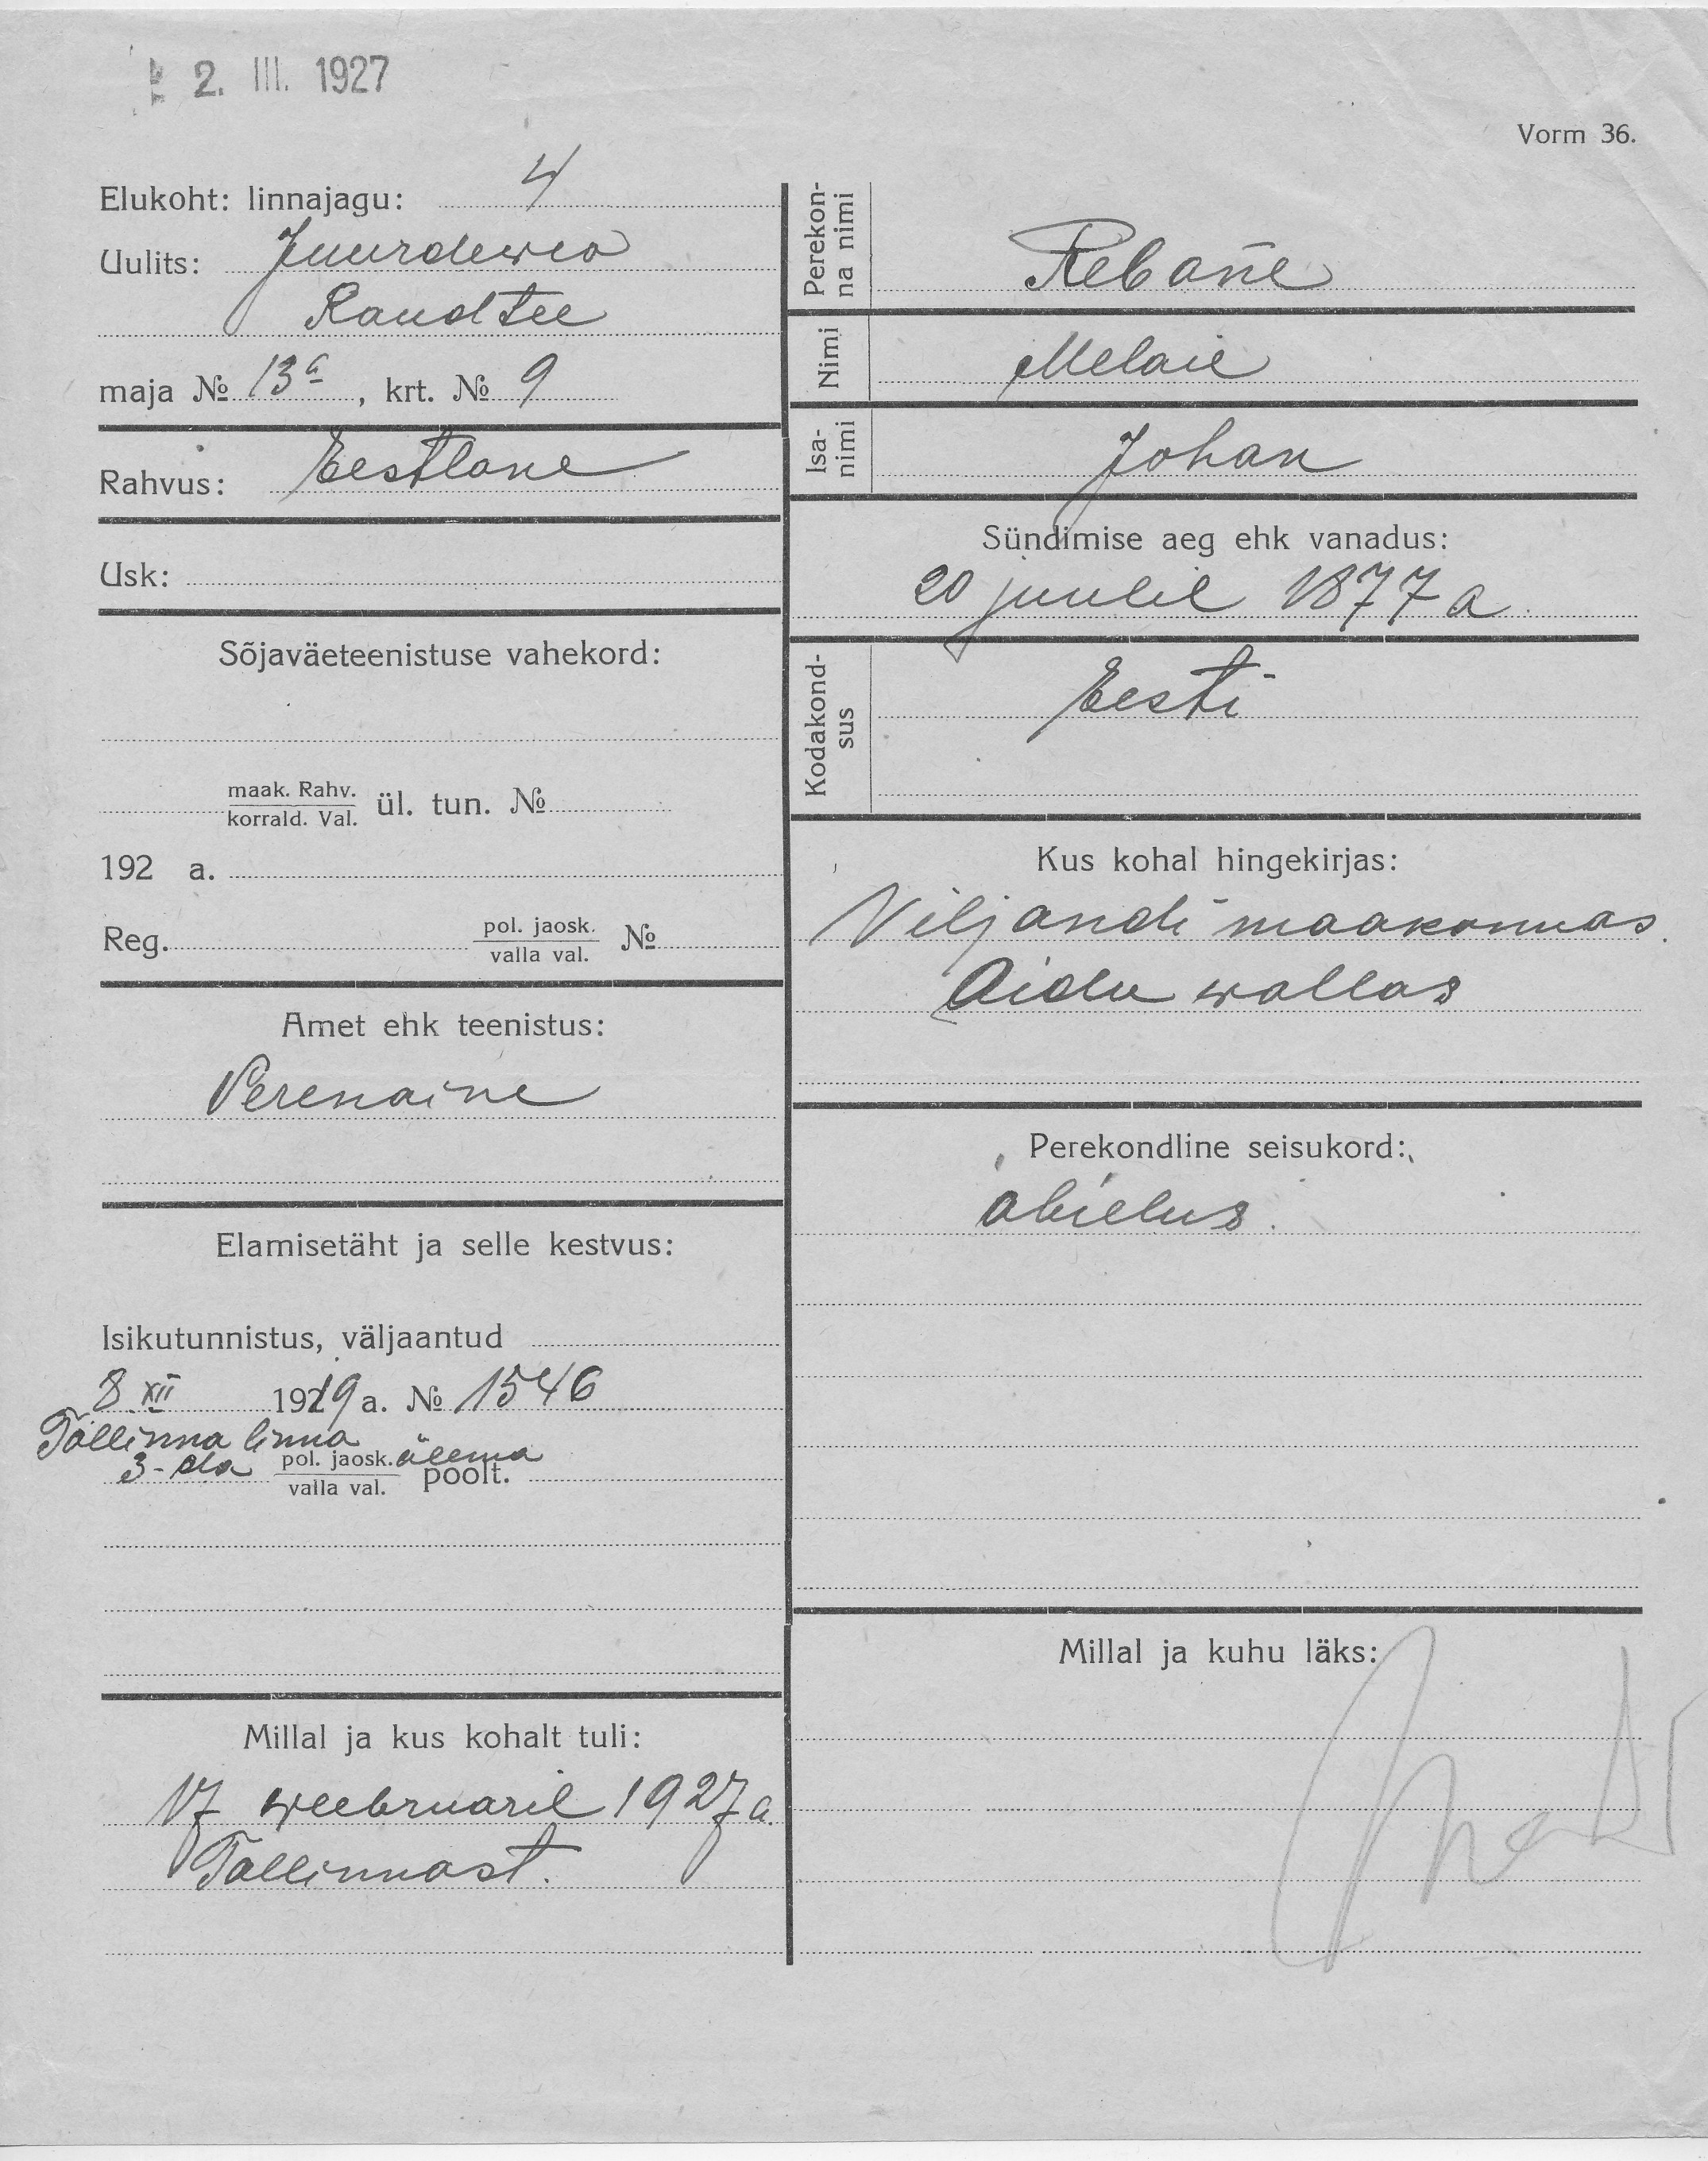 2. III. 1927
Vorm 36.
Elukoht: linnajagu: 4
Uulits: Juurdeweo
Raudtee
maja № 13a, krt. № 9
Rahvus: Eestlane
Usk:
Sõjaväeteenistuse vahekord:
maak. Rahv.
korrald. Val. ül. tun. №
192 a.
Reg. pol. jaosk. №
valla val.
Amet ehk teenistus:
Perenaine
Elamisetäht ja selle kestvus:
Isikutunnistus, väljaantud
8 XII 1919 a. № 1546
Tallinna linna
3-da pol. jaosk. ülema
valla val. poolt.
Millal ja kus kohalt tuli:
17 weebruaril 1927 a.
Tallinnast.
Perekon-
na nimi
Rebane
Nimi
Isa-
nimi
Johan
Sündimise aeg ehk vanadus:
20 juulil 1877 a.
Kodakond-
sus
Eesti
Kus kohal hingekirjas:
Viljandi maakonnas.
Aidu wallas
Perekondline seisukord:
abielus.
Millal ja kuhu läks: